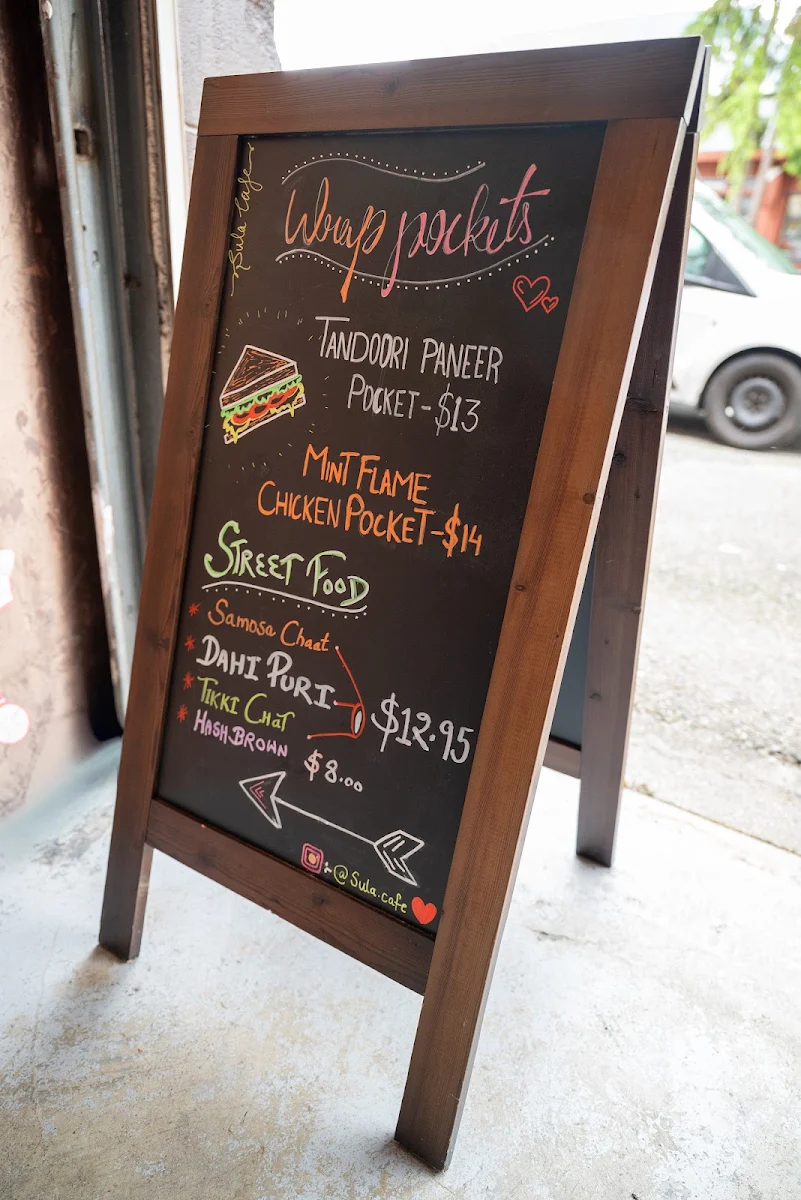 Sula Cafe
Wrap pockets
TANDOORI PANEER
POCKET-$13
MINT FLAME
CHICKEN POCKET-$14
STREET FOOD
* Samosa Chaat
* DAHI PURI
$12.95
* TIKKI CHAT
* HASHBROWN $8.00
:-@Sula.cafe